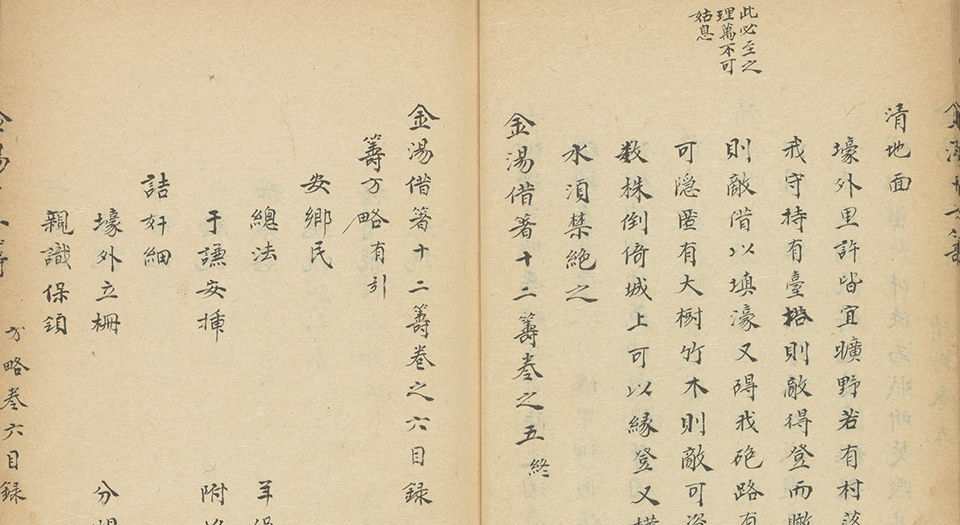 此必至之
理萬不可
姑息
清地面
壕外里許皆宜曠野若有村落
戒守待有臺榙則敵得登而瞰
則敵借以填濠又碍我砲路有
可隱匿有大樹竹木則敵可
数株倒倚城上可以縁登又
水須禁絶之
金湯借箸十二籌卷之五終
金湯借箸十二籌卷之六目録
籌方略有引
安鄉民
總法
于謙安揷
詰奸細
壕外立柵 分
親識保領
方略卷六目録